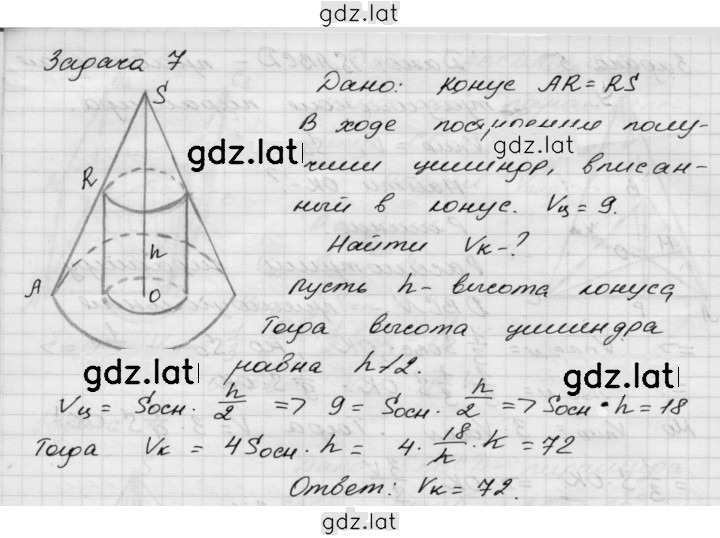 gdz.lat
Задача 7
S
Дано: конус AR = RS
В ходе построения полу-
gdz.lat
gdz.lat
чили цилиндр, вписан-
R
ный в конус. Vц = 9.
Найти Vк - ?
h
A
O
пусть h - высота конуса
Тогда высота цилиндра
равна h/2.
gdz.lat
gdz.lat
Vц = Sосн. · h/2 => 9 = Sосн. · h/2 => Sосн · h = 18
Тогда Vк = 4Sосн · h = 4 · 18/h · h = 72
Ответ: Vк = 72.
gdz.lat